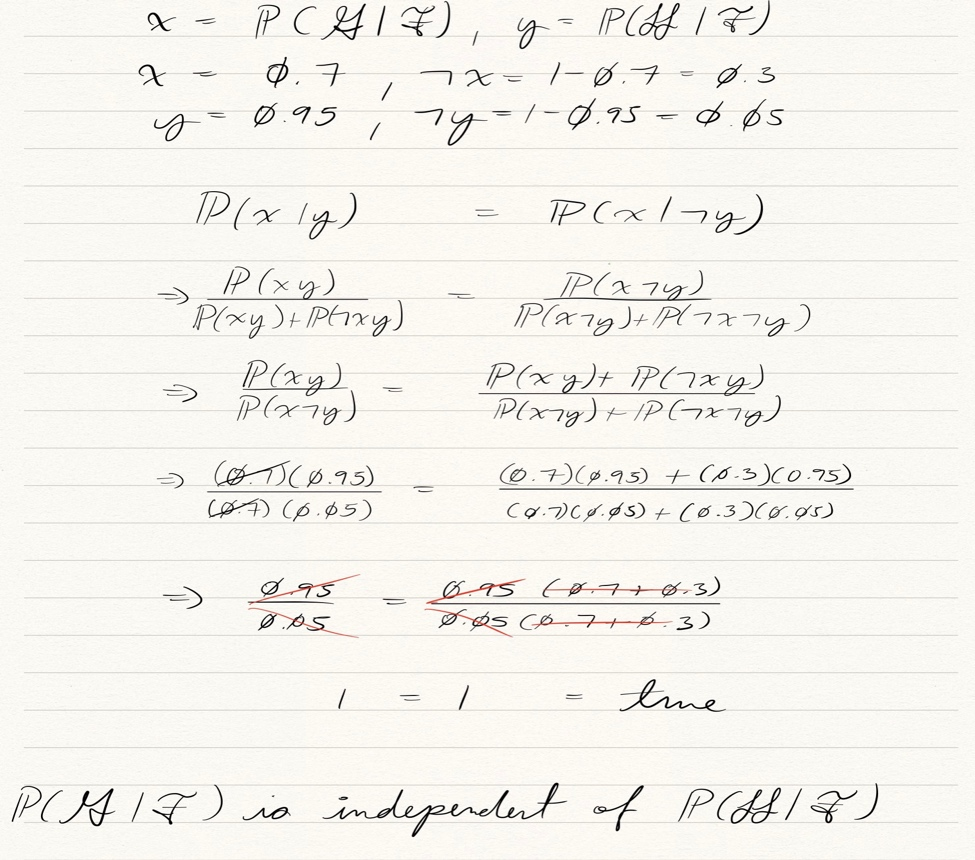 x = ℙ(𝒢|ℱ), y = ℙ(ℋ|ℱ)
x = 0.7, ¬x = 1-0.7 = 0.3
y = 0.95, ¬y = 1-0.95 = 0.05
ℙ(x|y) = ℙ(x|¬y)
⇒ ℙ(xy) / (ℙ(xy)+ℙ(¬xy)) = ℙ(x¬y) / (ℙ(x¬y)+ℙ(¬x¬y))
⇒ ℙ(xy) / ℙ(x¬y) = (ℙ(xy)+ℙ(¬xy)) / (ℙ(x¬y)+ℙ(¬x¬y))
⇒ (0.7)(0.95) / (0.7)(0.05) = ((0.7)(0.95) + (0.3)(0.95)) / ((0.7)(0.05) + (0.3)(0.05))
⇒ 0.95 / 0.05 = 0.95 (0.7+0.3) / 0.05 (0.7+0.3)
1 = 1 = true
ℙ(𝒢|ℱ) is independent of ℙ(ℋ|ℱ)